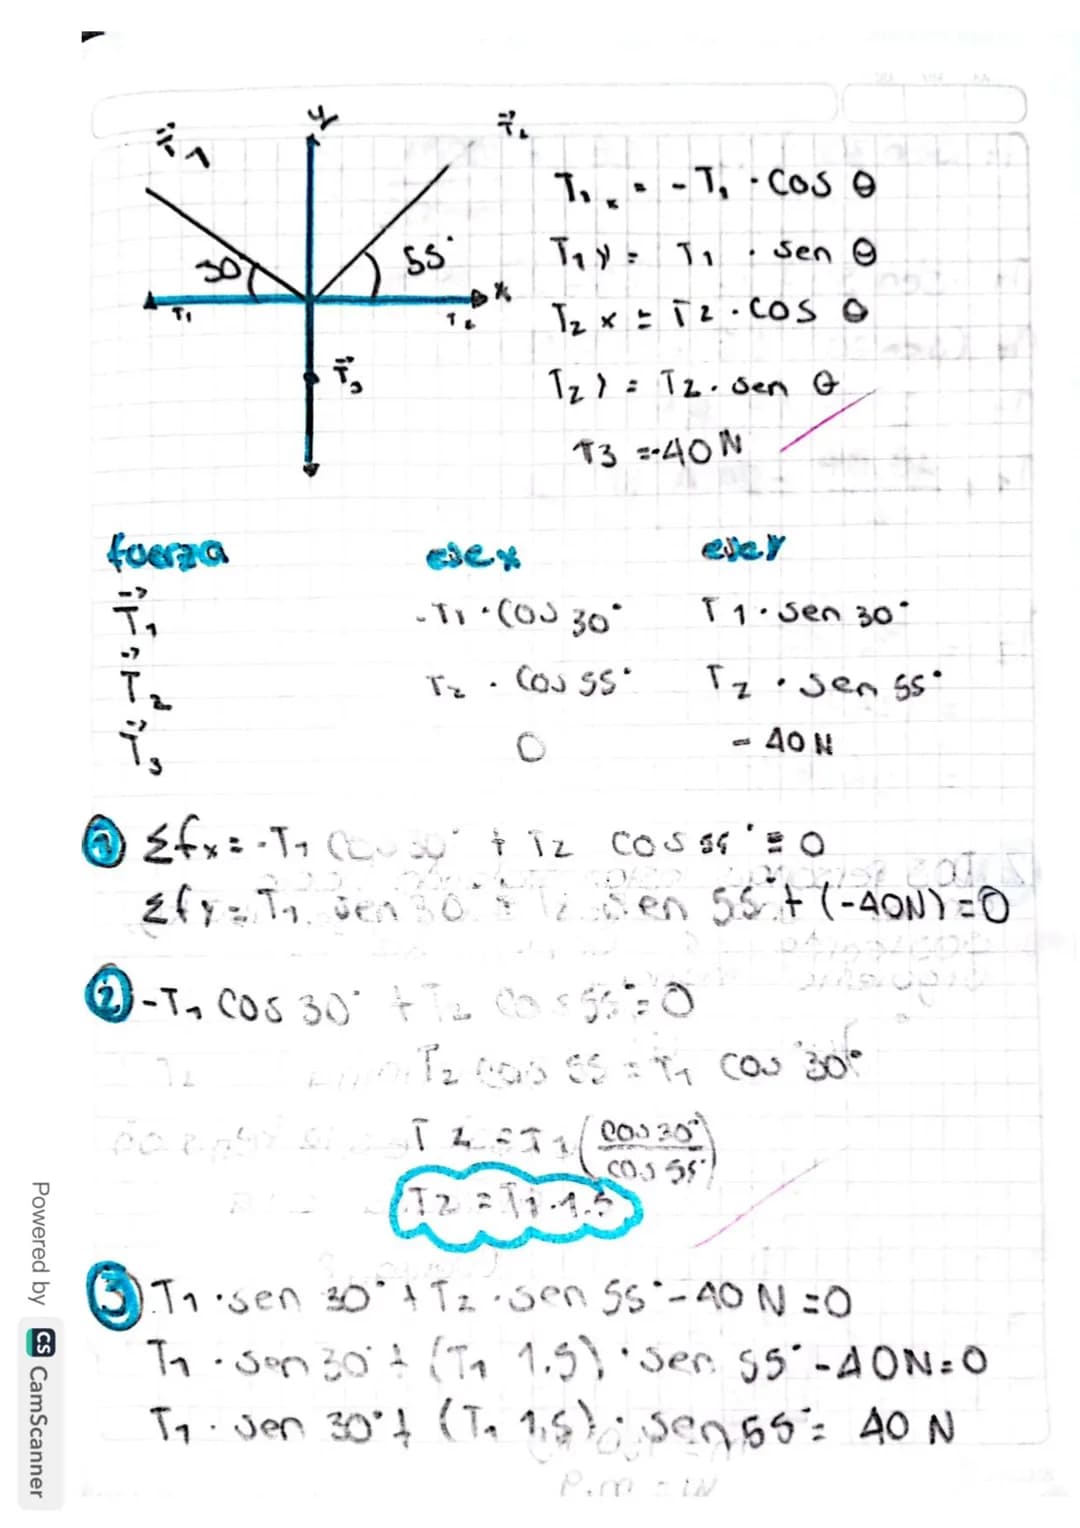 y
T⃗1
T⃗2
T₁x = -T₁ · Cos θ
30°
55°
T₁y = T₁ · sen θ
x
T₁
T₂
T₂x = T₂ · Cos θ
T⃗3
T₂y = T₂ · sen θ
T3 = -40N
fuerza eje x eje y
T⃗₁ -T₁ · Cos 30° T₁ · sen 30°
T⃗₂ T₂ · Cos 55° T₂ · sen 55°
T⃗₃ 0 - 40 N
① Σfx = -T₁ Cos 30° + T₂ cos 55° = 0
Σfy = T₁ sen 30° + T₂ sen 55° + (-40N) = 0
② -T₁ Cos 30° + T₂ Cos 55° = 0
T₂ cos 55 = T₁ cos 30°
T₂ = T₁ (cos 30° / cos 55°)
T₂ = T₁ · 1.5
③ T₁ · sen 30° + T₂ · sen 55° - 40 N = 0
T₁ · sen 30° + (T₁ 1.5) · sen 55° - 40N = 0
T₁ · sen 30° + (T₁ 1,5) · sen 55° = 40 N
Powered by CS CamScanner